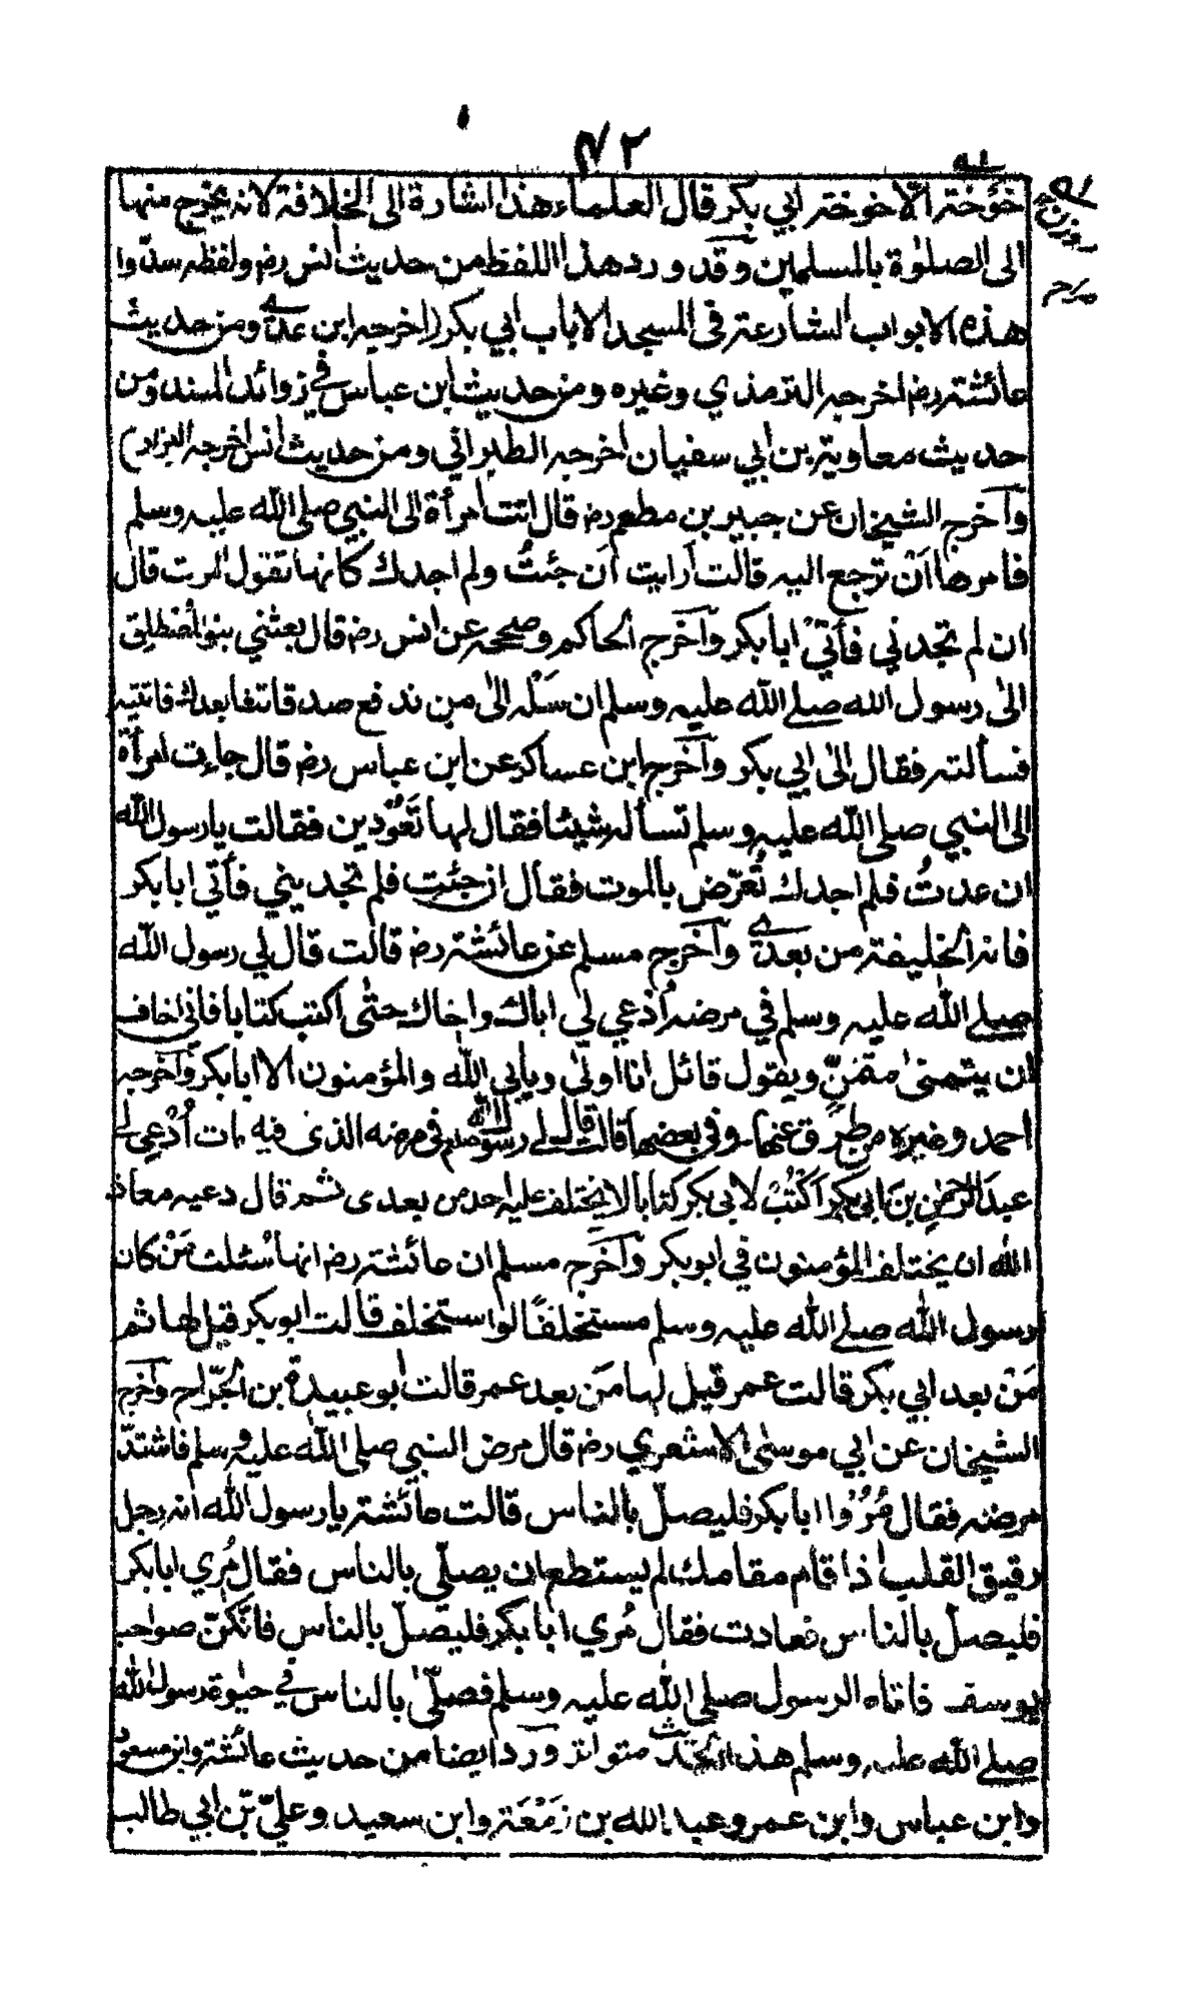 ٤٢
خَوْخَة الّا خوخة ابي بكر قال العلماء هذا اشارة الى الخلافة لانه يخرج منها
الى الصلوٰة بالمسلمين وقد ورد هذا اللفظ من حديث انس رض ولفظه سدّوا
هذه الابواب الشارعة فى المسجد الا باب ابي بكر (اخرجه ابن عدے ومن حديث
عائشة رض اخرجه الترمذي وغيره ومن حديث ابن عباس في زوائد المسند ومن
حديث معاوية بن ابي سفيان اخرجه الطبراني ومن حديث انس اخرجه البزار)
وآخرج الشيخان عن جبير بن مطعم رض قال اتت امرأة الى النبي صلى الله عليه وسلم
فامرها اَنْ ترجع اليه قالت اَرايت اَن جئتُ ولم اجدك كانها تقول الموت قال
ان لم تجدني فأتي ابا بكر وآخَرج الحاكم وصححه عن انس رض قال بعثني بنو المصْطلق
الىٰ رسول الله صلے الله عليه وسلم ان سَلْه الىٰ من ندفع صدقاتنا بعدك فاتيته
فسألته فقال الىٰ ابي بكر وآخَرج ابن عساكر عن ابن عباس رض قال جاءت امرأة
الى النبي صلى الله عليه وسلم تسأله شيئا فقال لها تَعُوْدين فقالت يا رسول الله
ان عدتُ فلم اجدك تُعرّض بالموت فقال ان جئتِ فلم تجديني فأتي ابا بكر
فانه الخليفة من بعدے وآخَرج مسلم عن عائشة رض قالت قال لي رسول الله
صلے الله عليه وسلم في مرضه اُدْعي لي اباك واخاك حتىٰ اكتب كتابا فاني اخاف
ان يتمنىٰ متمنٍّ ويقول قائل انا اولىٰ ويأبى الله والمؤمنون الا ابا بكر وآخرجه
احمد وغيره من طرق عنها وفي بعضها قالت قال لے رسول الله صلعم فى مرضه الذى فيه مات اُدْعِي لے
عبدَ الرحمٰنِ بنَ ابي بكر اَكْتُبْ لابى بكر كتابا لا يختلف عليه احد من بعدى ثم قال دعيه معاذ
الله ان يختلف المؤمنون في ابو بكر وآخَرج مسلم ان عائشة رض انها سُئلت مَنْ كان
رسول الله صلے الله عليه وسلم مستخلفًا لو استخلف قالت ابو بكر قيل لها ثم
مَنْ بعد ابي بكر قالت عمر قيل لها مَن بعد عمر قالت ابو عبيدة بن الجرّاح وآخرج
الشيخان عن ابي موسىٰ الاشعري رض قال مرض النبي صلى الله عليه وسلم فاشتدّ
مرضه فقال مُرُوْا ابا بكر فليصلّ بالناس قالت عائشة يا رسول الله انه رجل
رقيق القلب اذا قام مقامك لم يستطع ان يصلّي بالناس فقال مُري ابا بكر
فليصلّ بالناس فعادت فقال مُري ابا بكر فليصلّ بالناس فانّكنّ صواحب
يوسف فاتاه الرسول صلى الله عليه وسلم فصلّىٰ بالناس في حيٰوة رسول الله
صلے الله عليه وسلم هذا الحديث متواتر ورد ايضا من حديث عائشة وابن مسعود
وابن عباس وابن عمر وعبد الله بن زَمْعَة وابن سعيد وعليّ بْن ابي طالب